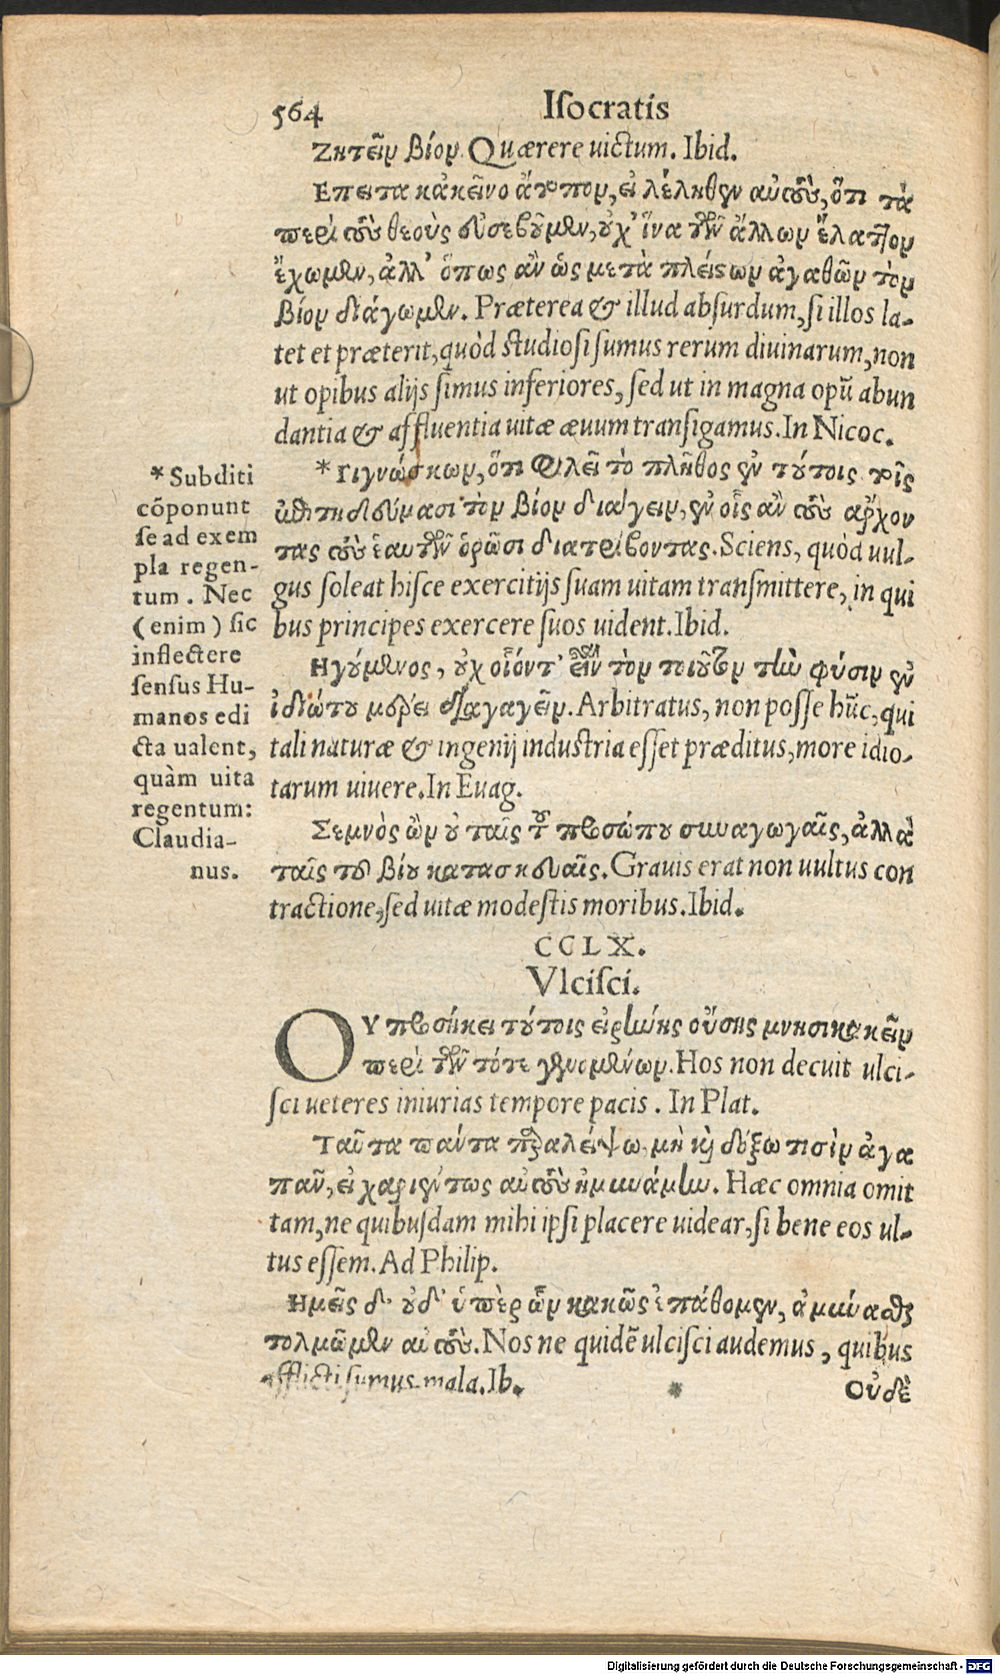 564 Iſocratis
Ζητεῖν βίον. Quærere uictum. Ibid.
Επειτα κἀκεῖνο ἄτοπον, εἰ λέληθεν αὐτοὺς, ὅτι τὰ
περὶ τοὺς θεοὺς εὐσεβοῦμεν, οὐχ ἵνα τῶν ἄλλων ἔλαττον
ἔχωμεν, ἀλλ' ὅπως ἂν ὡς μετὰ πλείστων ἀγαθῶν τὸν
βίον διάγωμεν. Præterea & illud abſurdum, ſi illos la-
tet et præterit, quòd ſtudioſi ſumus rerum diuinarum, non
ut opibus alijs ſimus inferiores, ſed ut in magna opū abun
dantia & affluentia uitæ æuum tranſigamus. In Nicoc.
* Γιγνώσκων, ὅτι φιλεῖ τὸ πλῆθος ἐν τούτοις τοῖς
ἐπιτηδεύμασι τὸν βίον διάγειν, ἐν οἷς ἂν τοὺς ἄρχον
τας τοὺς ἑαυτῶν ὁρῶσι διατρίβοντας. Sciens, quòd uul-
gus ſoleat hiſce exercitijs ſuam uitam tranſmittere, in qui
bus principes exercere ſuos uident. Ibid.
Ηγούμενος, οὐχ οἷόντ' εἶναι τὸν τοιοῦτον τὴν φύσιν ἐν
ἰδιώτου μέρει διαγαγεῖν. Arbitratus, non poſſe hūc, qui
tali naturæ & ingenij induſtria eſſet præditus, more idio-
tarum uiuere. In Euag.
Σεμνὸς ὢν οὐ ταῖς τοῦ προσώπου συναγωγαῖς, ἀλλὰ
ταῖς τοῦ βίου κατασκευαῖς. Grauis erat non uultus con
tractione, ſed uitæ modeſtis moribus. Ibid.
* Subditi
cōponunt
ſe ad exem
pla regen-
tum. Nec
(enim) ſic
inflectere
ſenſus Hu-
manos edi
cta ualent,
quàm uita
regentum:
Claudia-
nus.
CCLX.
Vlciſci.
ΟΥ προσήκει τούτοις εἰρήνης οὔσης μνησικακεῖν
περὶ τῶν τότε γενομένων. Hos non decuit ulci-
ſci ueteres iniurias tempore pacis. In Plat.
Ταῦτα πάντα παραλείψω, μὴ καὶ δόξω τισὶν ἀγα
πᾶν, εἰ χαριέντως αὐτοὺς ἠμυνάμην. Hæc omnia omit
tam, ne quibuſdam mihi ipſi placere uidear, ſi bene eos ul-
tus eſſem. Ad Philip.
Ημεῖς δ' οὐδ' ὑπὲρ ὧν κακῶς ἐπάθομεν, ἀμύνασθαι
τολμῶμεν αὐτοὺς. Nos ne quidē ulciſci audemus, quibus
afflicti ſumus mala. Ib. * Οὐδὲ
Digitalisierung gefördert durch die Deutsche Forschungsgemeinschaft - DFG